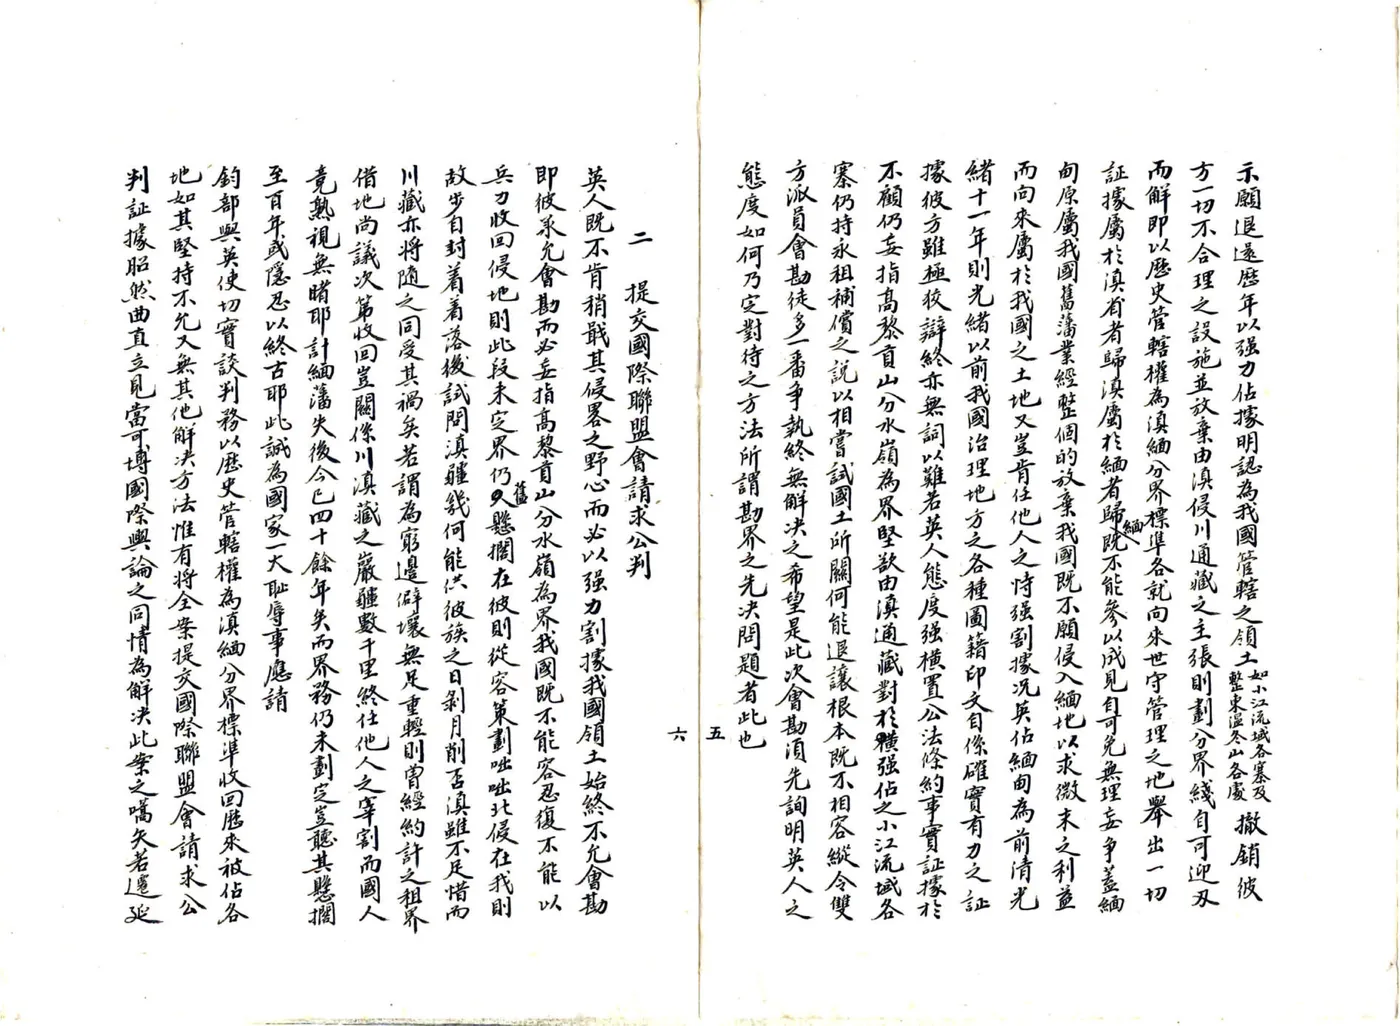 示願退還歷年以强力佔據明認為我國管轄之領土如小江流域各寨及整東溫冬山各處撤銷彼
方一切不合理之設施並放棄由滇侵川通藏之主張則劃分界綫自可迎刃
而解即以歷史管轄權為滇緬分界標準各就向來世守管理之地舉出一切
証據屬於滇省者歸滇屬於緬者歸緬既不能參以成見自可免無理妄争蓋緬
甸原屬我國舊藩業經整個的放棄我國既不願侵入緬地以求微末之利益
而向來屬於我國之土地又豈肯任他人之恃强割據况英佔緬甸為前清光
緒十一年則光緒以前我國治理地方之各種圖籍印文自係確實有力之証
據彼方雖極狡辯終亦無詞以難若英人態度强橫置公法條約事實証據於
不顧仍妄指高黎貢山分水嶺為界堅欲由滇通藏對於橫强佔之小江流域各
寨仍持永租補償之説以相嘗試國土所關何能退讓根本既不相容縱令雙
方派員會勘徒多一番争執終無解决之希望是此次會勘須先詢明英人之
態度如何乃定對待之方法所謂勘界之先决問題者此也
五
六
二 提交國際聯盟會請求公判
英人既不肯稍戢其侵畧之野心而必以强力割據我國領土始終不允會勘
即彼承允會勘而必妄指高黎貢山分水嶺為界我國既不能容忍復不能以
兵力收回侵地則此段未定界仍舊懸擱在彼則從容策劃咄咄北侵在我則
故步自封着着落後試問滇疆幾何能供彼族之日剝月削否滇雖不足惜而
川藏亦將隨之同受其禍矣若謂為窮邊僻壤無足重輕則曾經約許之租界
借地尚議次第收回豈關係川滇藏之嚴疆數千里終任他人之宰割而國人
竟熟視無睹耶計緬藩失後今已四十餘年矣而界務仍未劃定豈聽其懸擱
至百年或隱忍以終古耶此誠為國家一大恥辱事應請
鈞部與英使切實談判務以歷史管轄權為滇緬分界標準收回歷來被佔各
地如其堅持不允又無其他解决方法惟有將全案提交國際聯盟會請求公
判証據昭然曲直立見當可博國際輿論之同情為解决此案之嚆矢若遷延